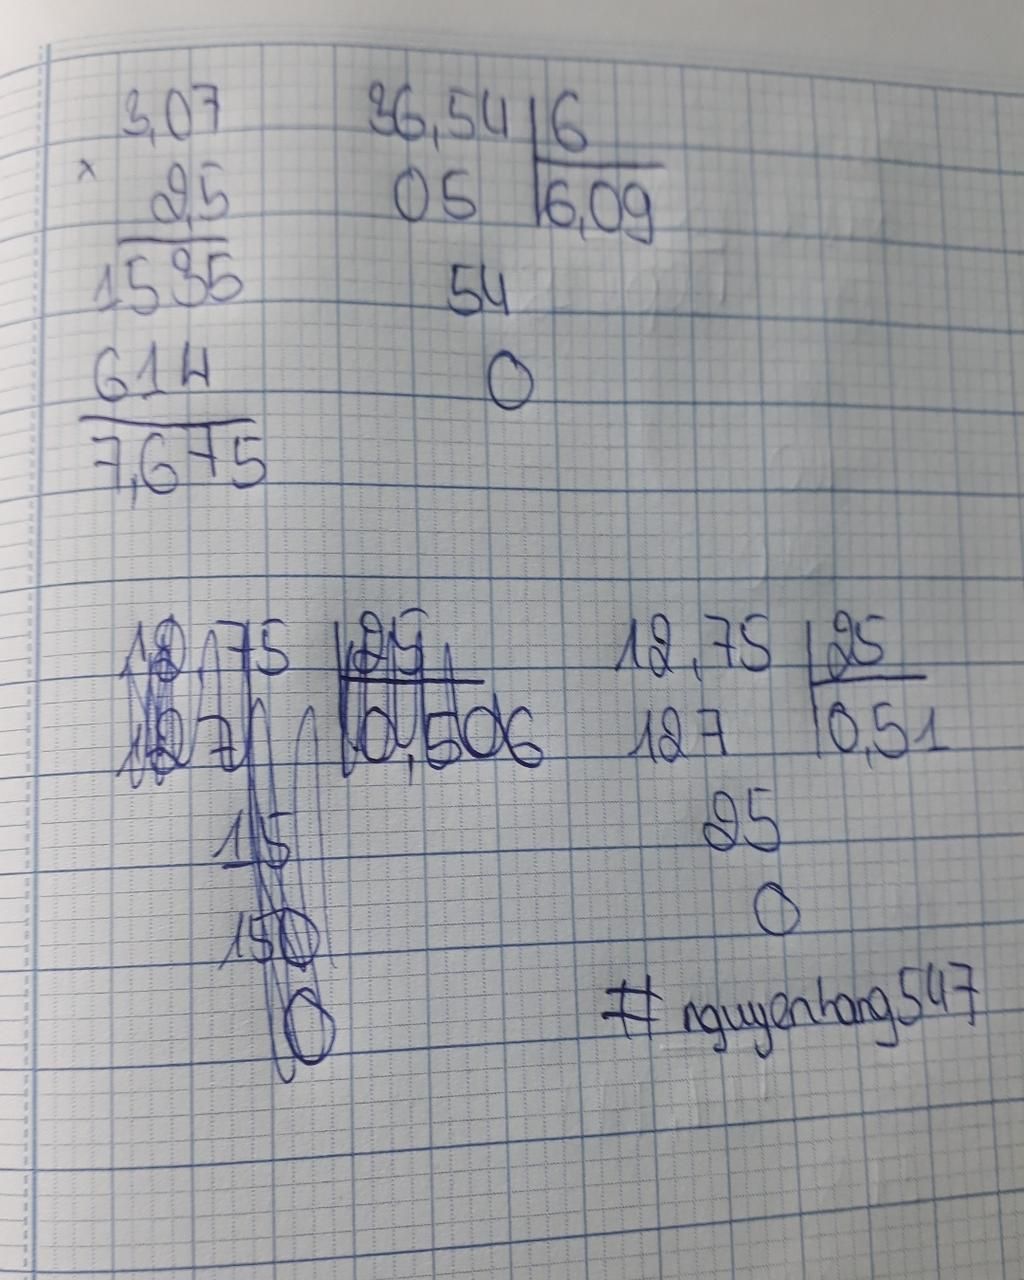 3,07
× 2,5
1535
614
7,675
36,54 6
05 6,09
54
0
12,75 25
127 0,506
15
150
0
12,75 25
127 0,51
25
0
# nguyenhang547